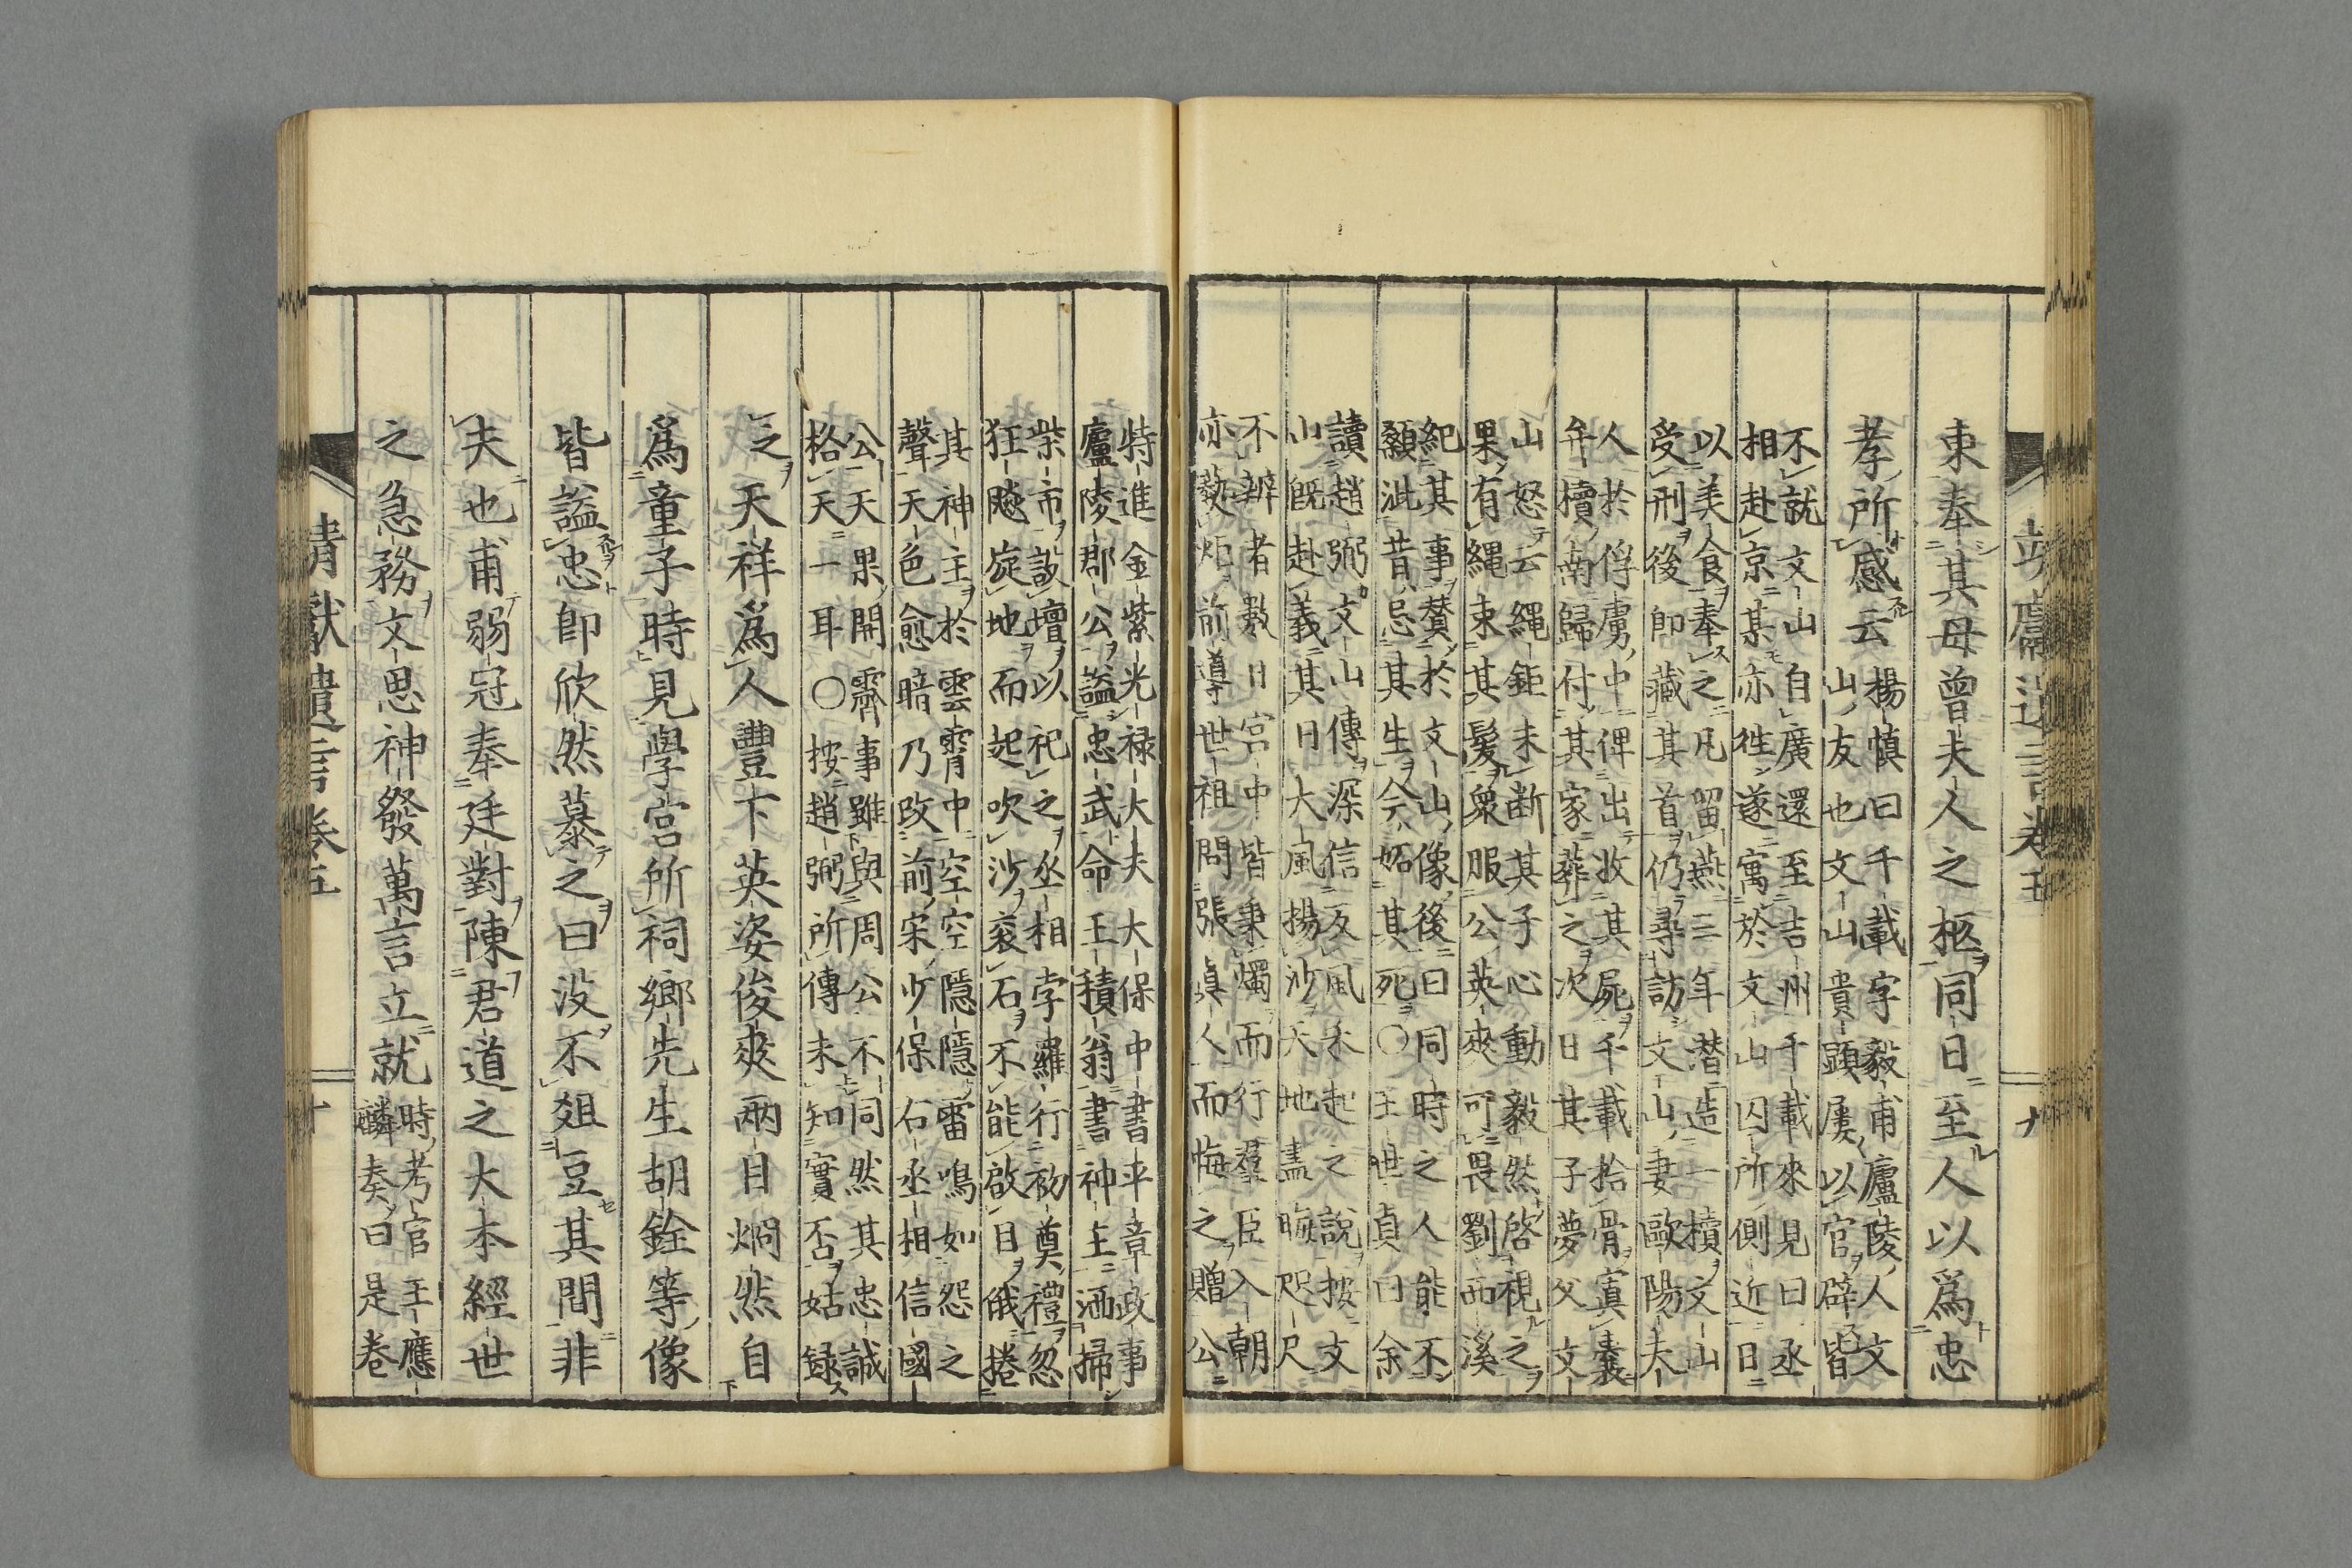 東奉其母曾夫人之柩同日至人以爲忠
孝所感云
楊愼曰千載字毅甫廬陵人文
山友也文山貴顯屡以官辟皆
不就文山自廣還至吉州千載來見曰丞
相赴京某亦徃遂寓於文山囚所側近日
以美食奉之凡留燕三年潜造一櫝文山
受刑後即藏其首仍尋訪文山妻歐陽夫
人於俘虜中俾出火其屍千載拾骨寘囊
弁櫝南歸付其家葬之次日其子夢父文
山怒云繩鉅未断其子心動毅然啓視之
果有繩束其髪衆服公英爽可畏劉西溪
紀其事賛於文山像後曰同時之人能不
顙泚昔忌其生今妬其死〇王世貞曰余
讀趙弼文山傳深信反風禾起之說按文
山旣赴義其日大風揚沙天地盡晦咫尺
不辨者數日宮中皆秉燭而行羣臣入朝
亦爇炬前導世祖問張眞人而悔之贈公
特進金紫光禄大夫大保中書平章政事
廬陵郡公謚忠武命王積翁書神主洒掃
柴市設壇以祀之丞相孛羅行初奠禮忽
狂飈旋地而起吹沙衮石不能啟目俄捲
其神主於雲霄中空空隱隱雷鳴如怨之
聲天色愈暗乃改前宋少保右丞相信國
公天果開霽事雖與周公不同然其忠誠
格天一耳〇按趙弼所傳未知實否姑録
之
天祥爲人豐下英姿俊爽兩目炯然自
爲童子時見學宮所祠鄉先生胡銓等像
皆謚忠即欣然慕之曰没不爼豆其間非
夫也甫弱冠奉廷對陳君道之大本經世
之急務文思神發萬言立就
時考官王應
麟奏曰是卷
靖獻遺言卷五